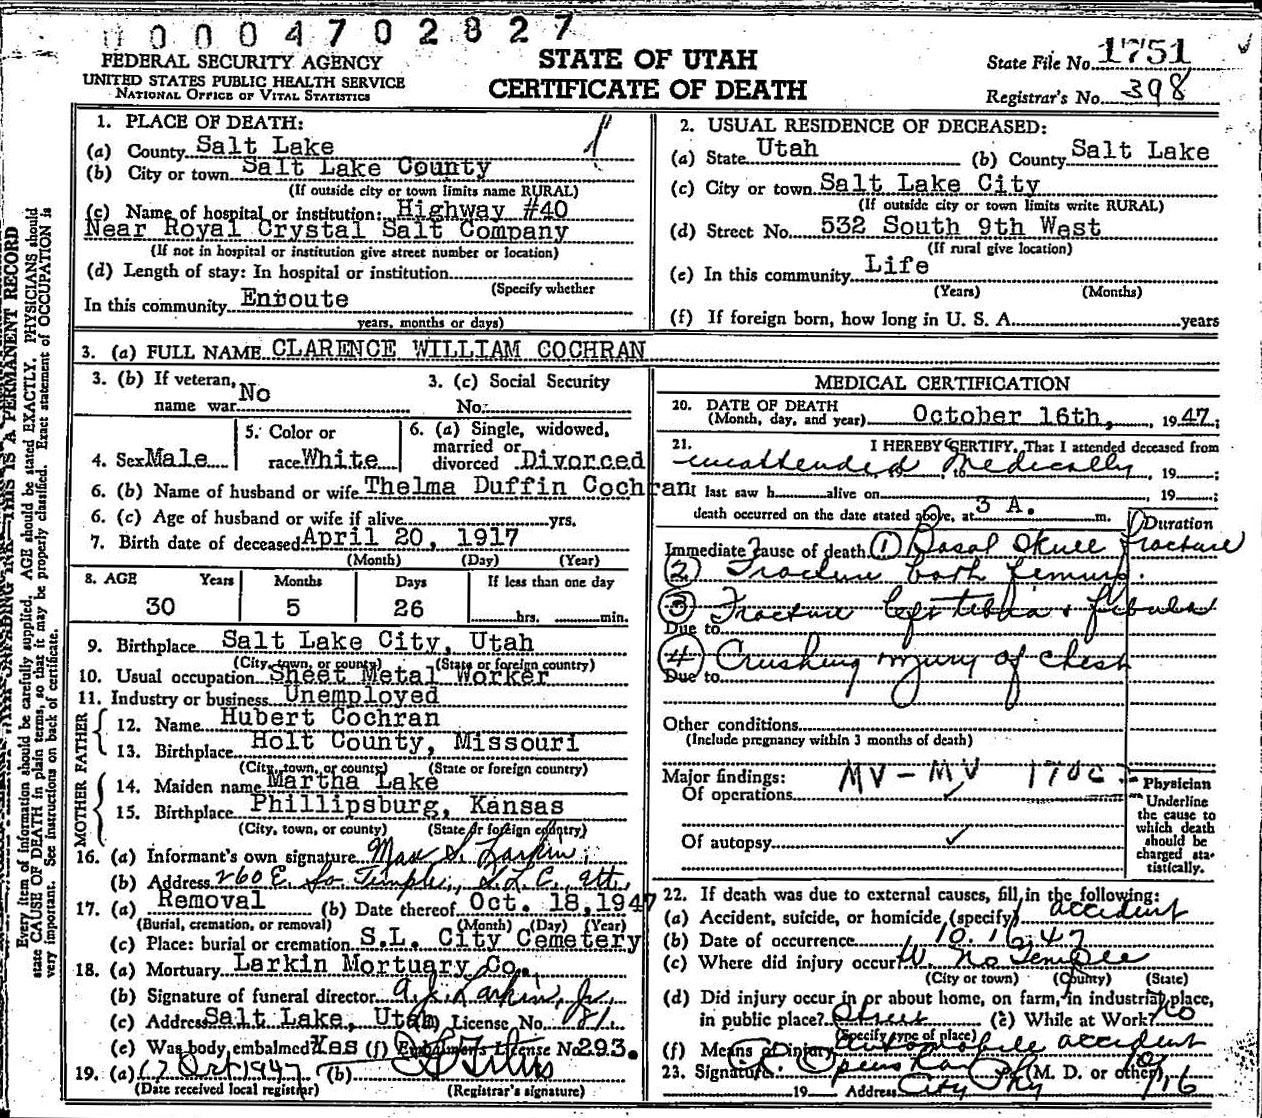 00004702827
FEDERAL SECURITY AGENCY
UNITED STATES PUBLIC HEALTH SERVICE
NATIONAL OFFICE OF VITAL STATISTICS
STATE OF UTAH
CERTIFICATE OF DEATH
State File No. 1751
Registrar's No. 398
1. PLACE OF DEATH:
(a) County Salt Lake
(b) City or town Salt Lake County
(If outside city or town limits name RURAL)
(c) Name of hospital or institution: Highway #40
Near Royal Crystal Salt Company
(If not in hospital or institution give street number or location)
(d) Length of stay: In hospital or institution
(Specify whether
In this community Enroute
years, months or days)
2. USUAL RESIDENCE OF DECEASED:
(a) State Utah (b) County Salt Lake
(c) City or town Salt Lake City
(If outside city or town limits write RURAL)
(d) Street No. 532 South 9th West
(If rural give location)
(e) In this community Life
(Years) (Months)
(f) If foreign born, how long in U. S. A. years
3. (a) FULL NAME CLARENCE WILLIAM COCHRAN
3. (b) If veteran, name war No
3. (c) Social Security No.
4. Sex Male
5. Color or race White
6. (a) Single, widowed, married or divorced Divorced
6. (b) Name of husband or wife Thelma Duffin Cochran
6. (c) Age of husband or wife if alive yrs.
7. Birth date of deceased April 20, 1917
(Month) (Day) (Year)
8. AGE Years Months Days If less than one day
30 5 26 hrs. min.
9. Birthplace Salt Lake City, Utah
(City, town, or county) (State or foreign country)
10. Usual occupation Sheet Metal Worker
11. Industry or business Unemployed
FATHER
12. Name Hubert Cochran
13. Birthplace Holt County, Missouri
(City, town, or county) (State or foreign country)
MOTHER
14. Maiden name Martha Lake
15. Birthplace Phillipsburg, Kansas
(City, town, or county) (State or foreign country)
16. (a) Informant's own signature Max S. Larkin
(b) Address 260 E. So Temple, S.L.C., Ut.
17. (a) Removal (b) Date thereof Oct. 18, 1947
(Burial, cremation, or removal) (Month) (Day) (Year)
(c) Place: burial or cremation S.L. City Cemetery
18. (a) Mortuary Larkin Mortuary Co.
(b) Signature of funeral director A. J. Larkin, Jr.
(c) Address Salt Lake, Utah (d) License No. 81
(e) Was body embalmed? Yes (f) Embalmer's License No. 293.
19. (a) 17 Oct 1947 (b)
(Date received local registrar) (Registrar's signature)
MEDICAL CERTIFICATION
20. DATE OF DEATH
(Month, day, and year) October 16th, 1947;
21. I HEREBY CERTIFY, That I attended deceased from
unattended medically, 19 to , 19 ;
I last saw h alive on , 19 ;
death occurred on the date stated above, at 3 A. m.
Duration
Immediate cause of death (1) Basal Skull fracture
(2) Fracture both femurs.
(3) Fracture left tibia & fibula
Due to
(4) Crushing injury of chest
Due to
Other conditions
(Include pregnancy within 3 months of death)
Major findings: MV - MV 170c
Of operations
Of autopsy
Physician
Underline the cause to which death should be charged statistically.
22. If death was due to external causes, fill in the following:
(a) Accident, suicide, or homicide (specify) accident
(b) Date of occurrence 10.16.47
(c) Where did injury occur? W. No Temple
(City or town) (County) (State)
(d) Did injury occur in or about home, on farm, in industrial place,
in public place? Street (e) While at Work? No
(Specify type of place)
(f) Means of injury automobile accident
23. Signature (M. D. or other)
19 Address City Phy 10/16
Every item of information should be carefully supplied. AGE should be stated EXACTLY. PHYSICIANS should
state CAUSE OF DEATH in plain terms, so that it may be properly classified. Exact statement of OCCUPATION is
very important. See instructions on back of certificate.
THIS IS A PERMANENT RECORD